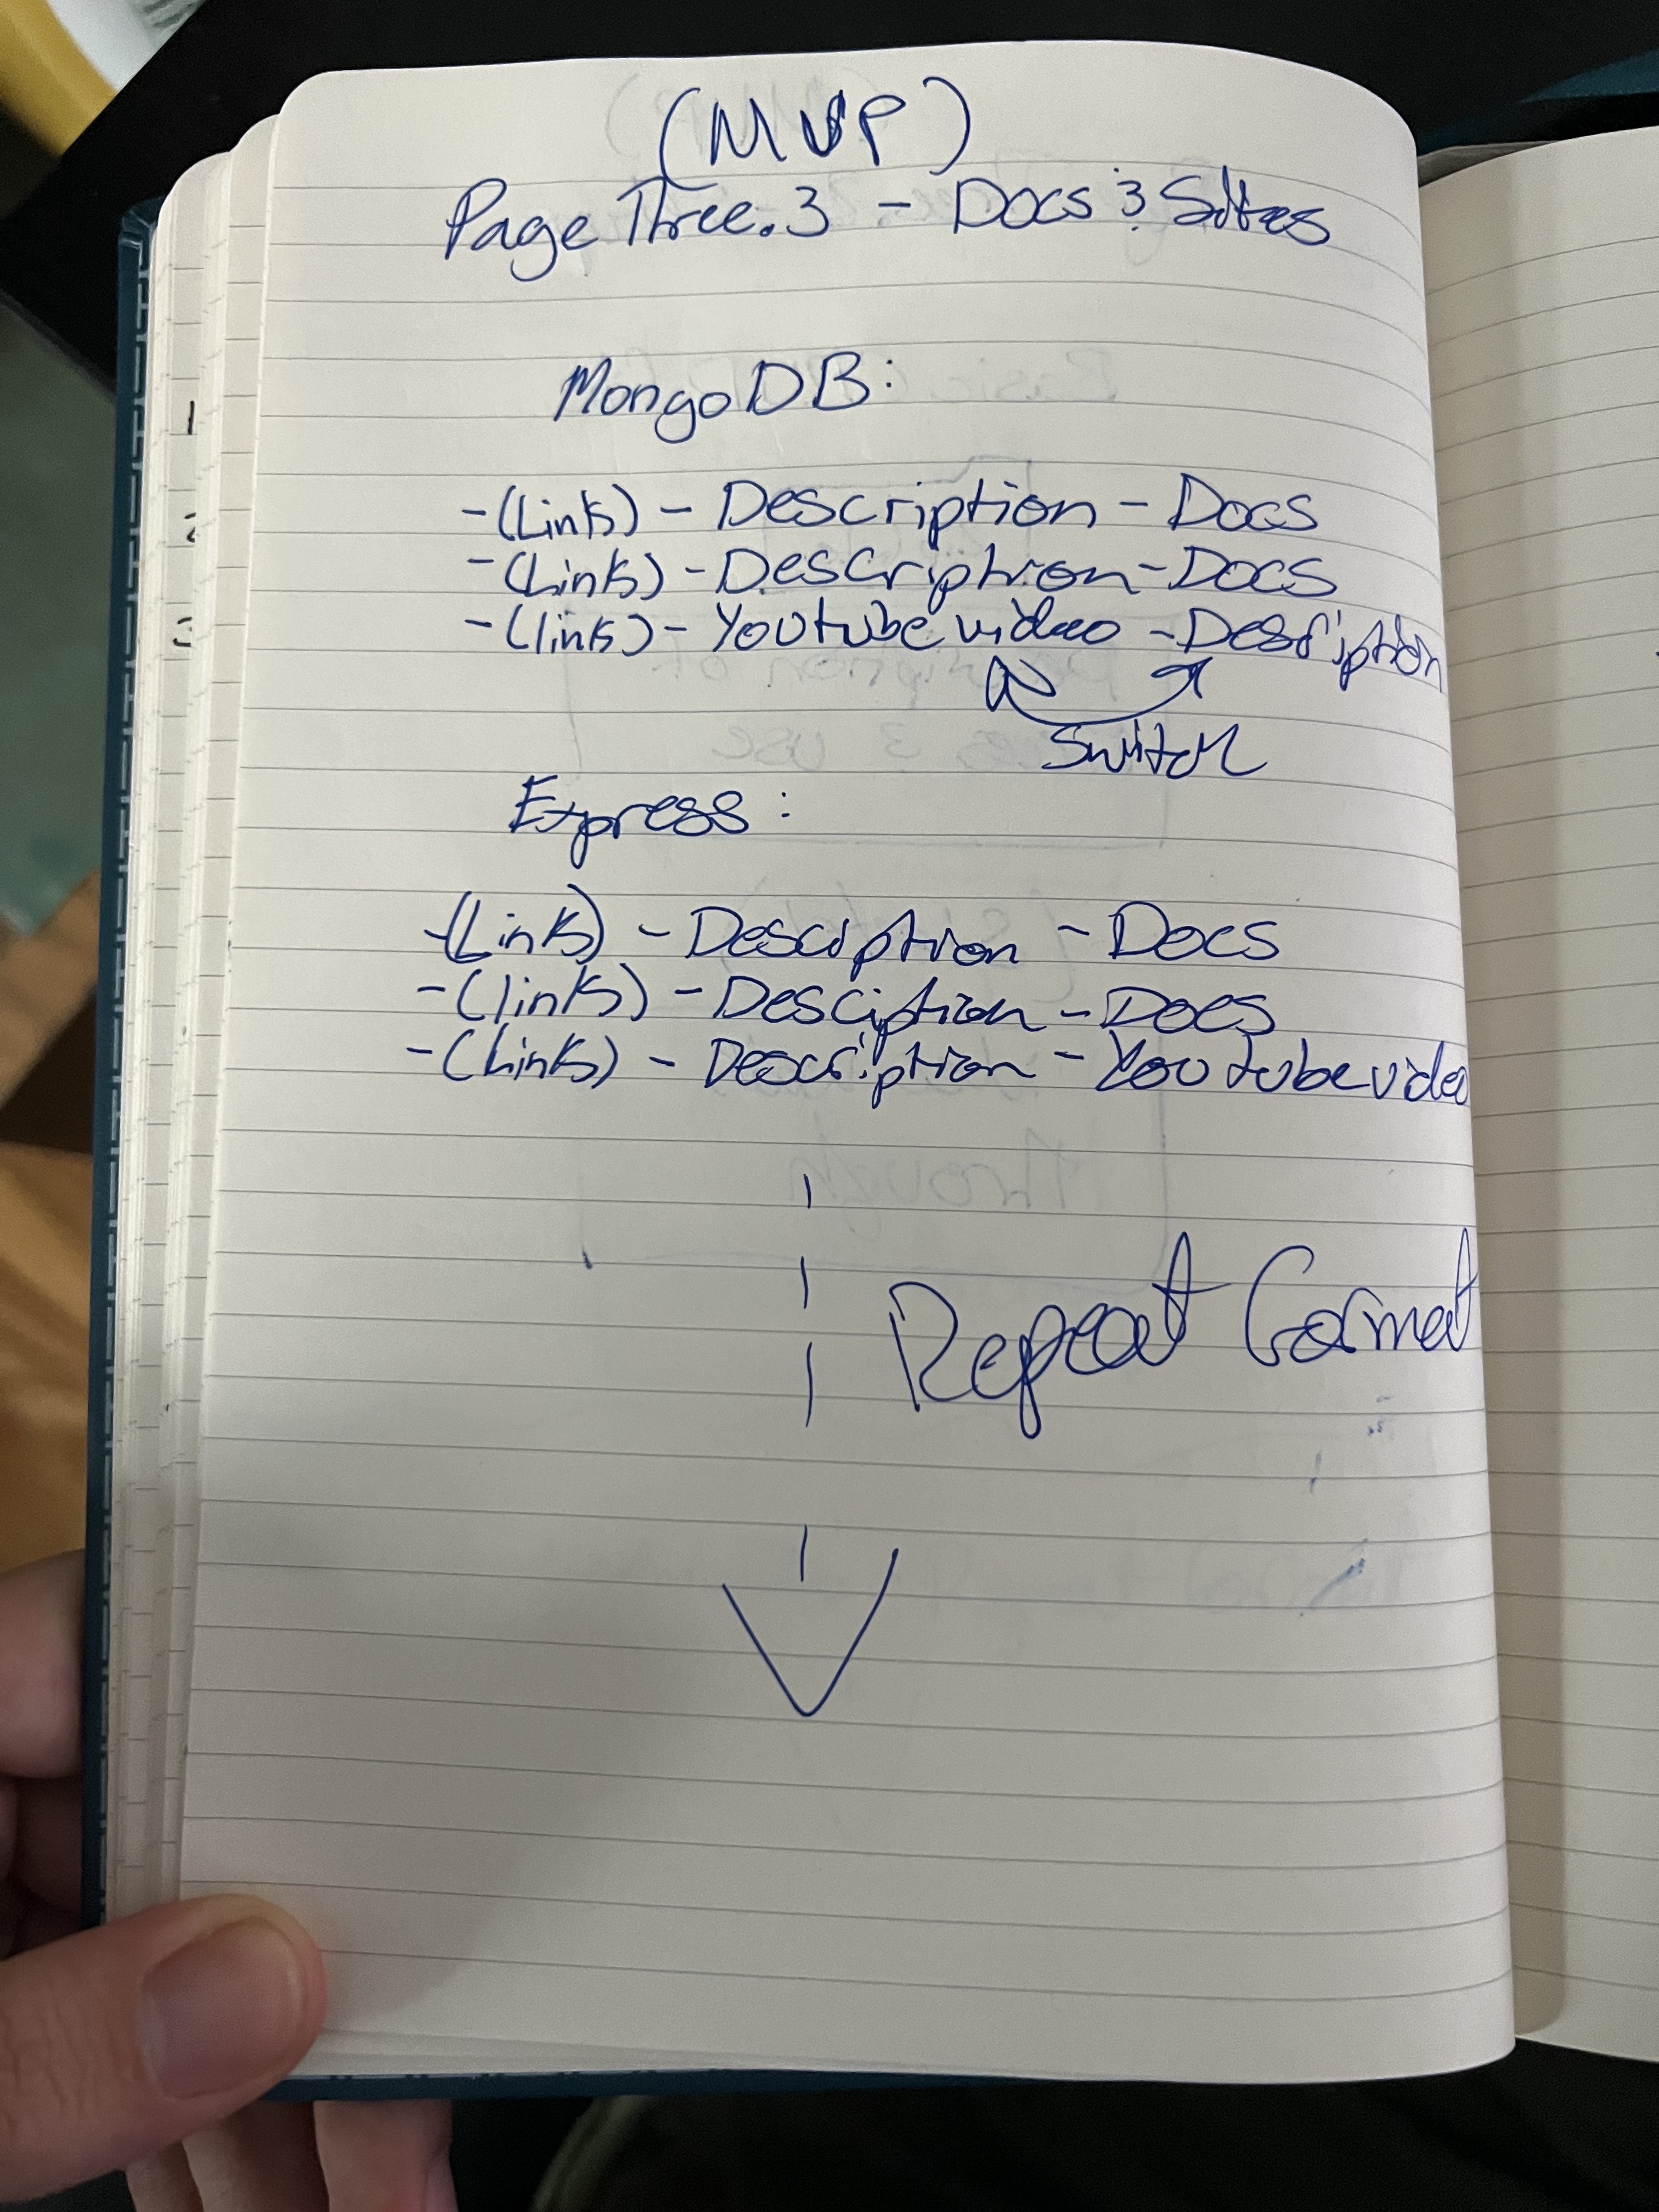 (MVP)
Page Three.3 - Docs & Sites
MongoDB:
-(Links) - Description - Docs
-(Links) - Description - Docs
-(links) - Youtube video - Desription
Switch
Express:
-(Links) - Desciption - Docs
-(links) - Desciption - Docs
-(Links) - Description - Youtube video
Repeat Format